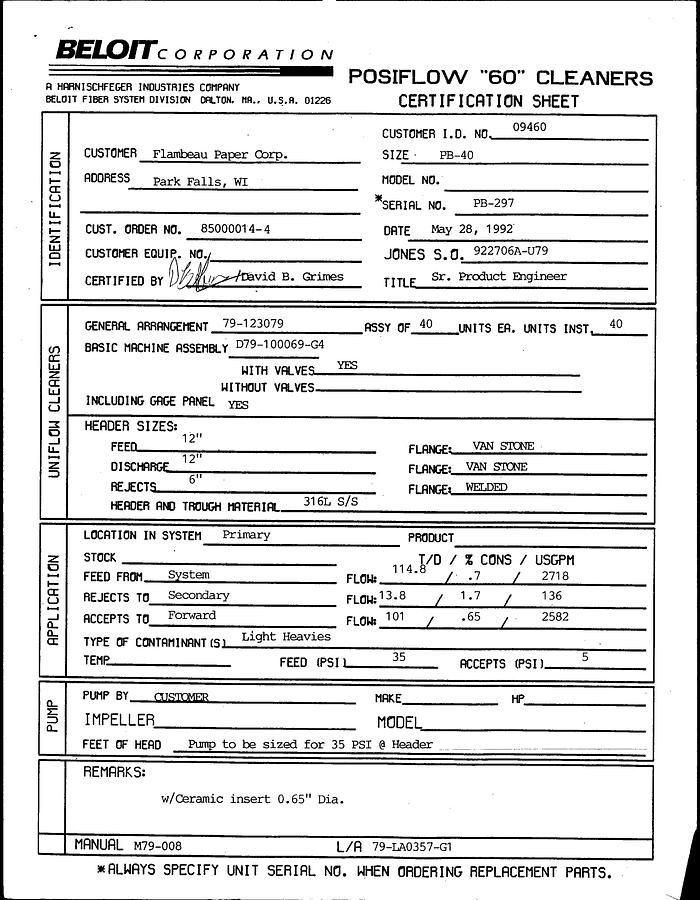 BELOIT CORPORATION
A HARNISCHFEGER INDUSTRIES COMPANY
BELOIT FIBER SYSTEM DIVISION DALTON, MA., U.S.A. 01226
POSIFLOW "60" CLEANERS
CERTIFICATION SHEET
IDENTIFICATION
CUSTOMER I.D. NO. 09460
CUSTOMER Flambeau Paper Corp. SIZE PB-40
ADDRESS Park Falls, WI MODEL NO.
*SERIAL NO. PB-297
CUST. ORDER NO. 85000014-4 DATE May 28, 1992
CUSTOMER EQUIP. NO. JONES S.O. 922706A-U79
CERTIFIED BY /David B. Grimes TITLE Sr. Product Engineer
UNIFLOW CLEANERS
GENERAL ARRANGEMENT 79-123079 ASSY OF 40 UNITS EA. UNITS INST. 40
BASIC MACHINE ASSEMBLY D79-100069-G4
WITH VALVES YES
WITHOUT VALVES
INCLUDING GAGE PANEL YES
HEADER SIZES:
FEED 12" FLANGE: VAN STONE
DISCHARGE 12" FLANGE: VAN STONE
REJECTS 6" FLANGE: WELDED
HEADER AND TROUGH MATERIAL 316L S/S
APPLICATION
LOCATION IN SYSTEM Primary PRODUCT
STOCK T/D / % CONS / USGPM
FEED FROM System FLOW: 114.8 / .7 / 2718
REJECTS TO Secondary FLOW: 13.8 / 1.7 / 136
ACCEPTS TO Forward FLOW: 101 / .65 / 2582
TYPE OF CONTAMINANT(S) Light Heavies
TEMP. FEED (PSI) 35 ACCEPTS (PSI) 5
PUMP
PUMP BY CUSTOMER MAKE HP
IMPELLER MODEL
FEET OF HEAD Pump to be sized for 35 PSI @ Header
REMARKS:
w/Ceramic insert 0.65" Dia.
MANUAL M79-008 L/A 79-LA0357-G1
*ALWAYS SPECIFY UNIT SERIAL NO. WHEN ORDERING REPLACEMENT PARTS.